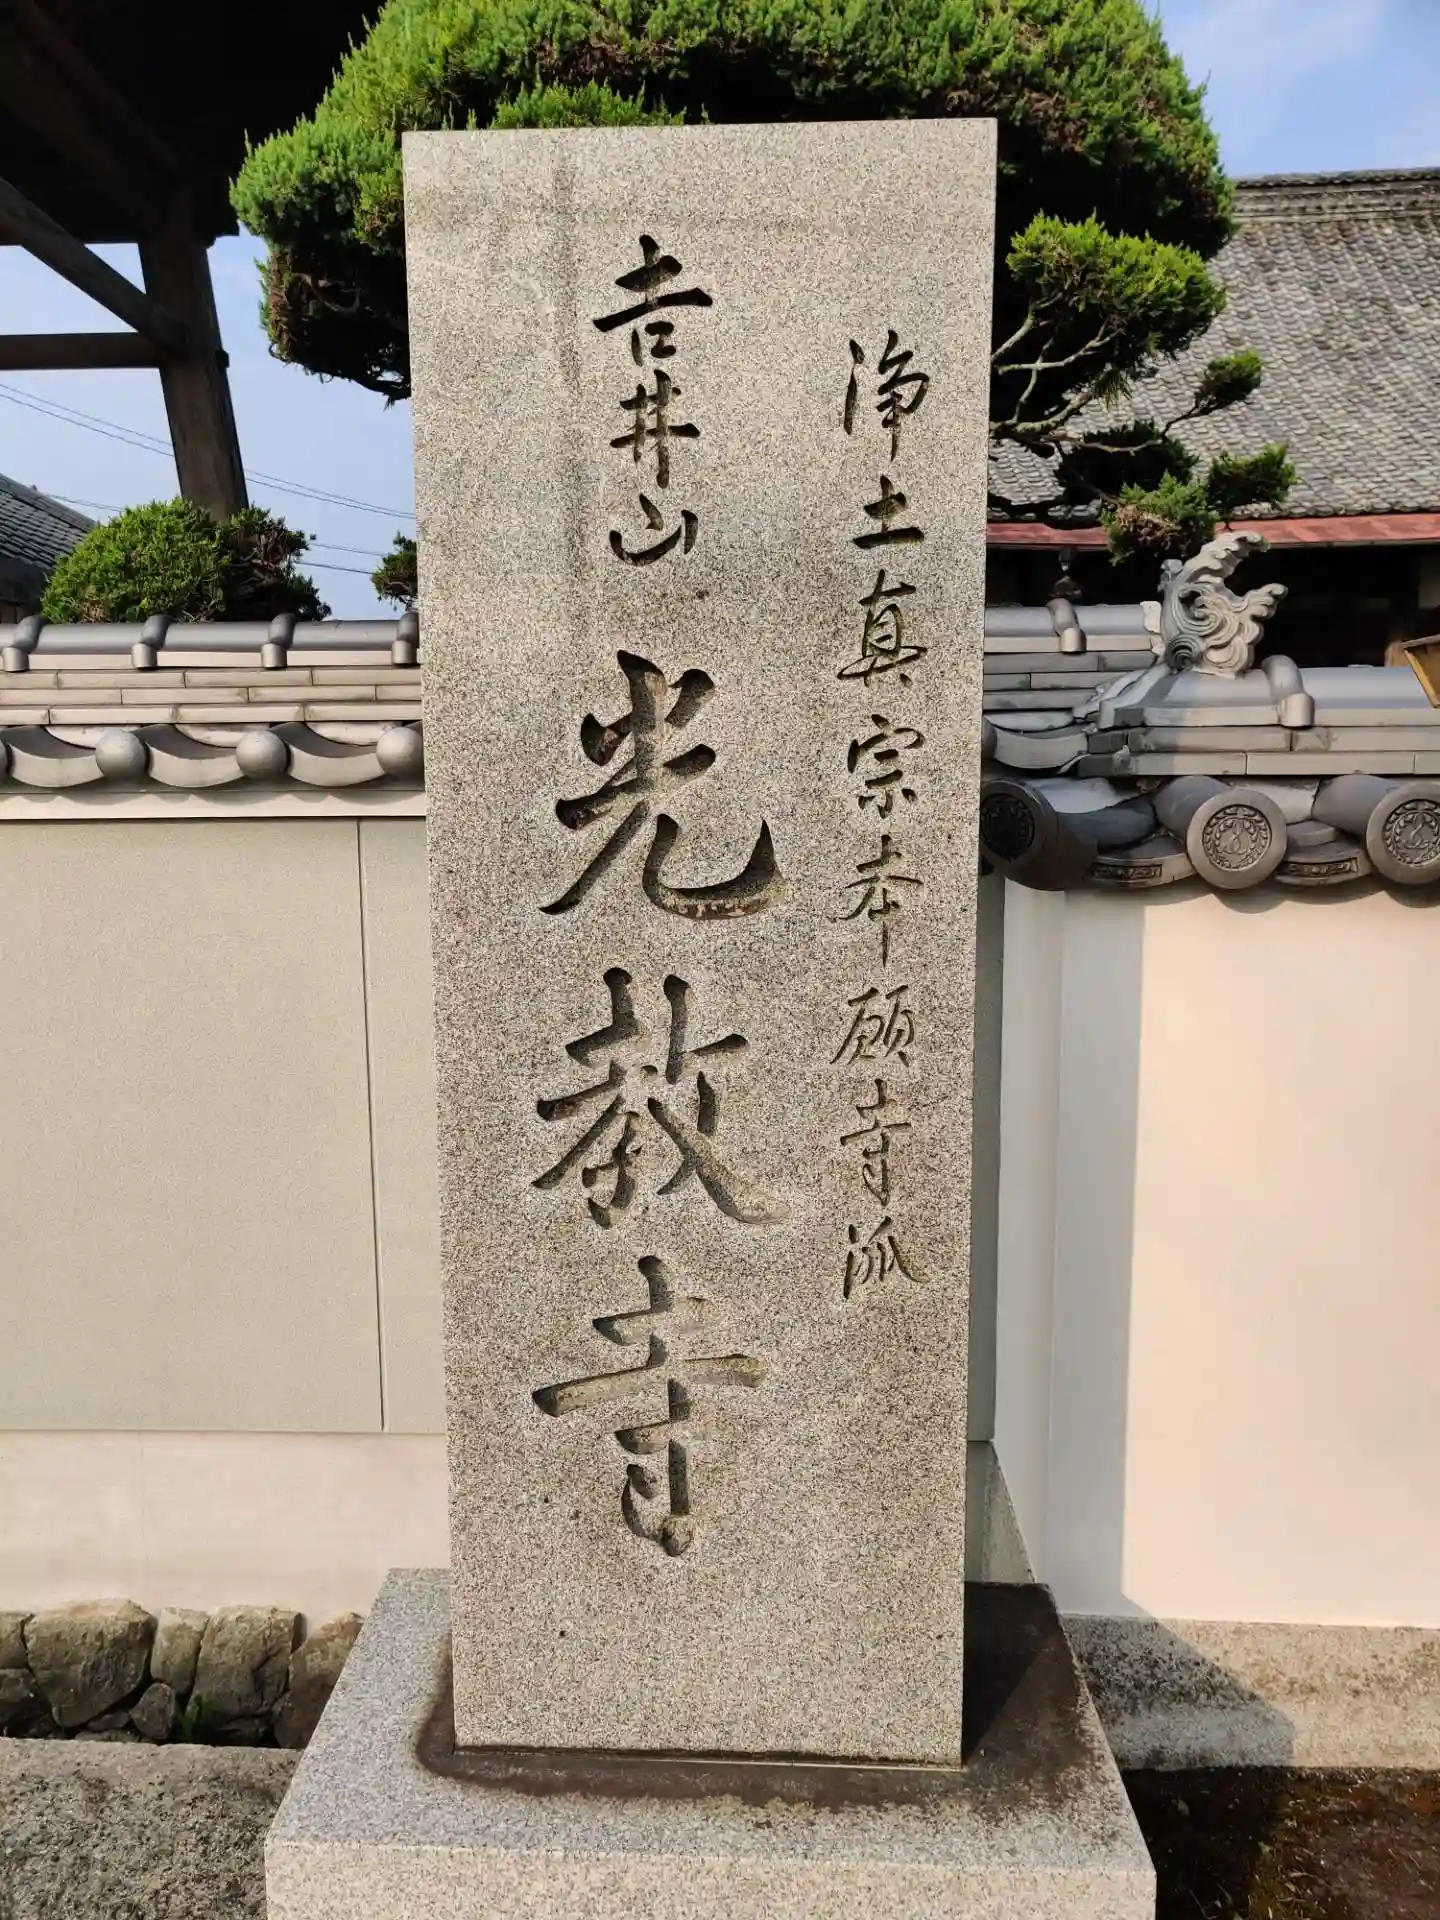 浄土真宗本願寺派
吉井山 光教寺